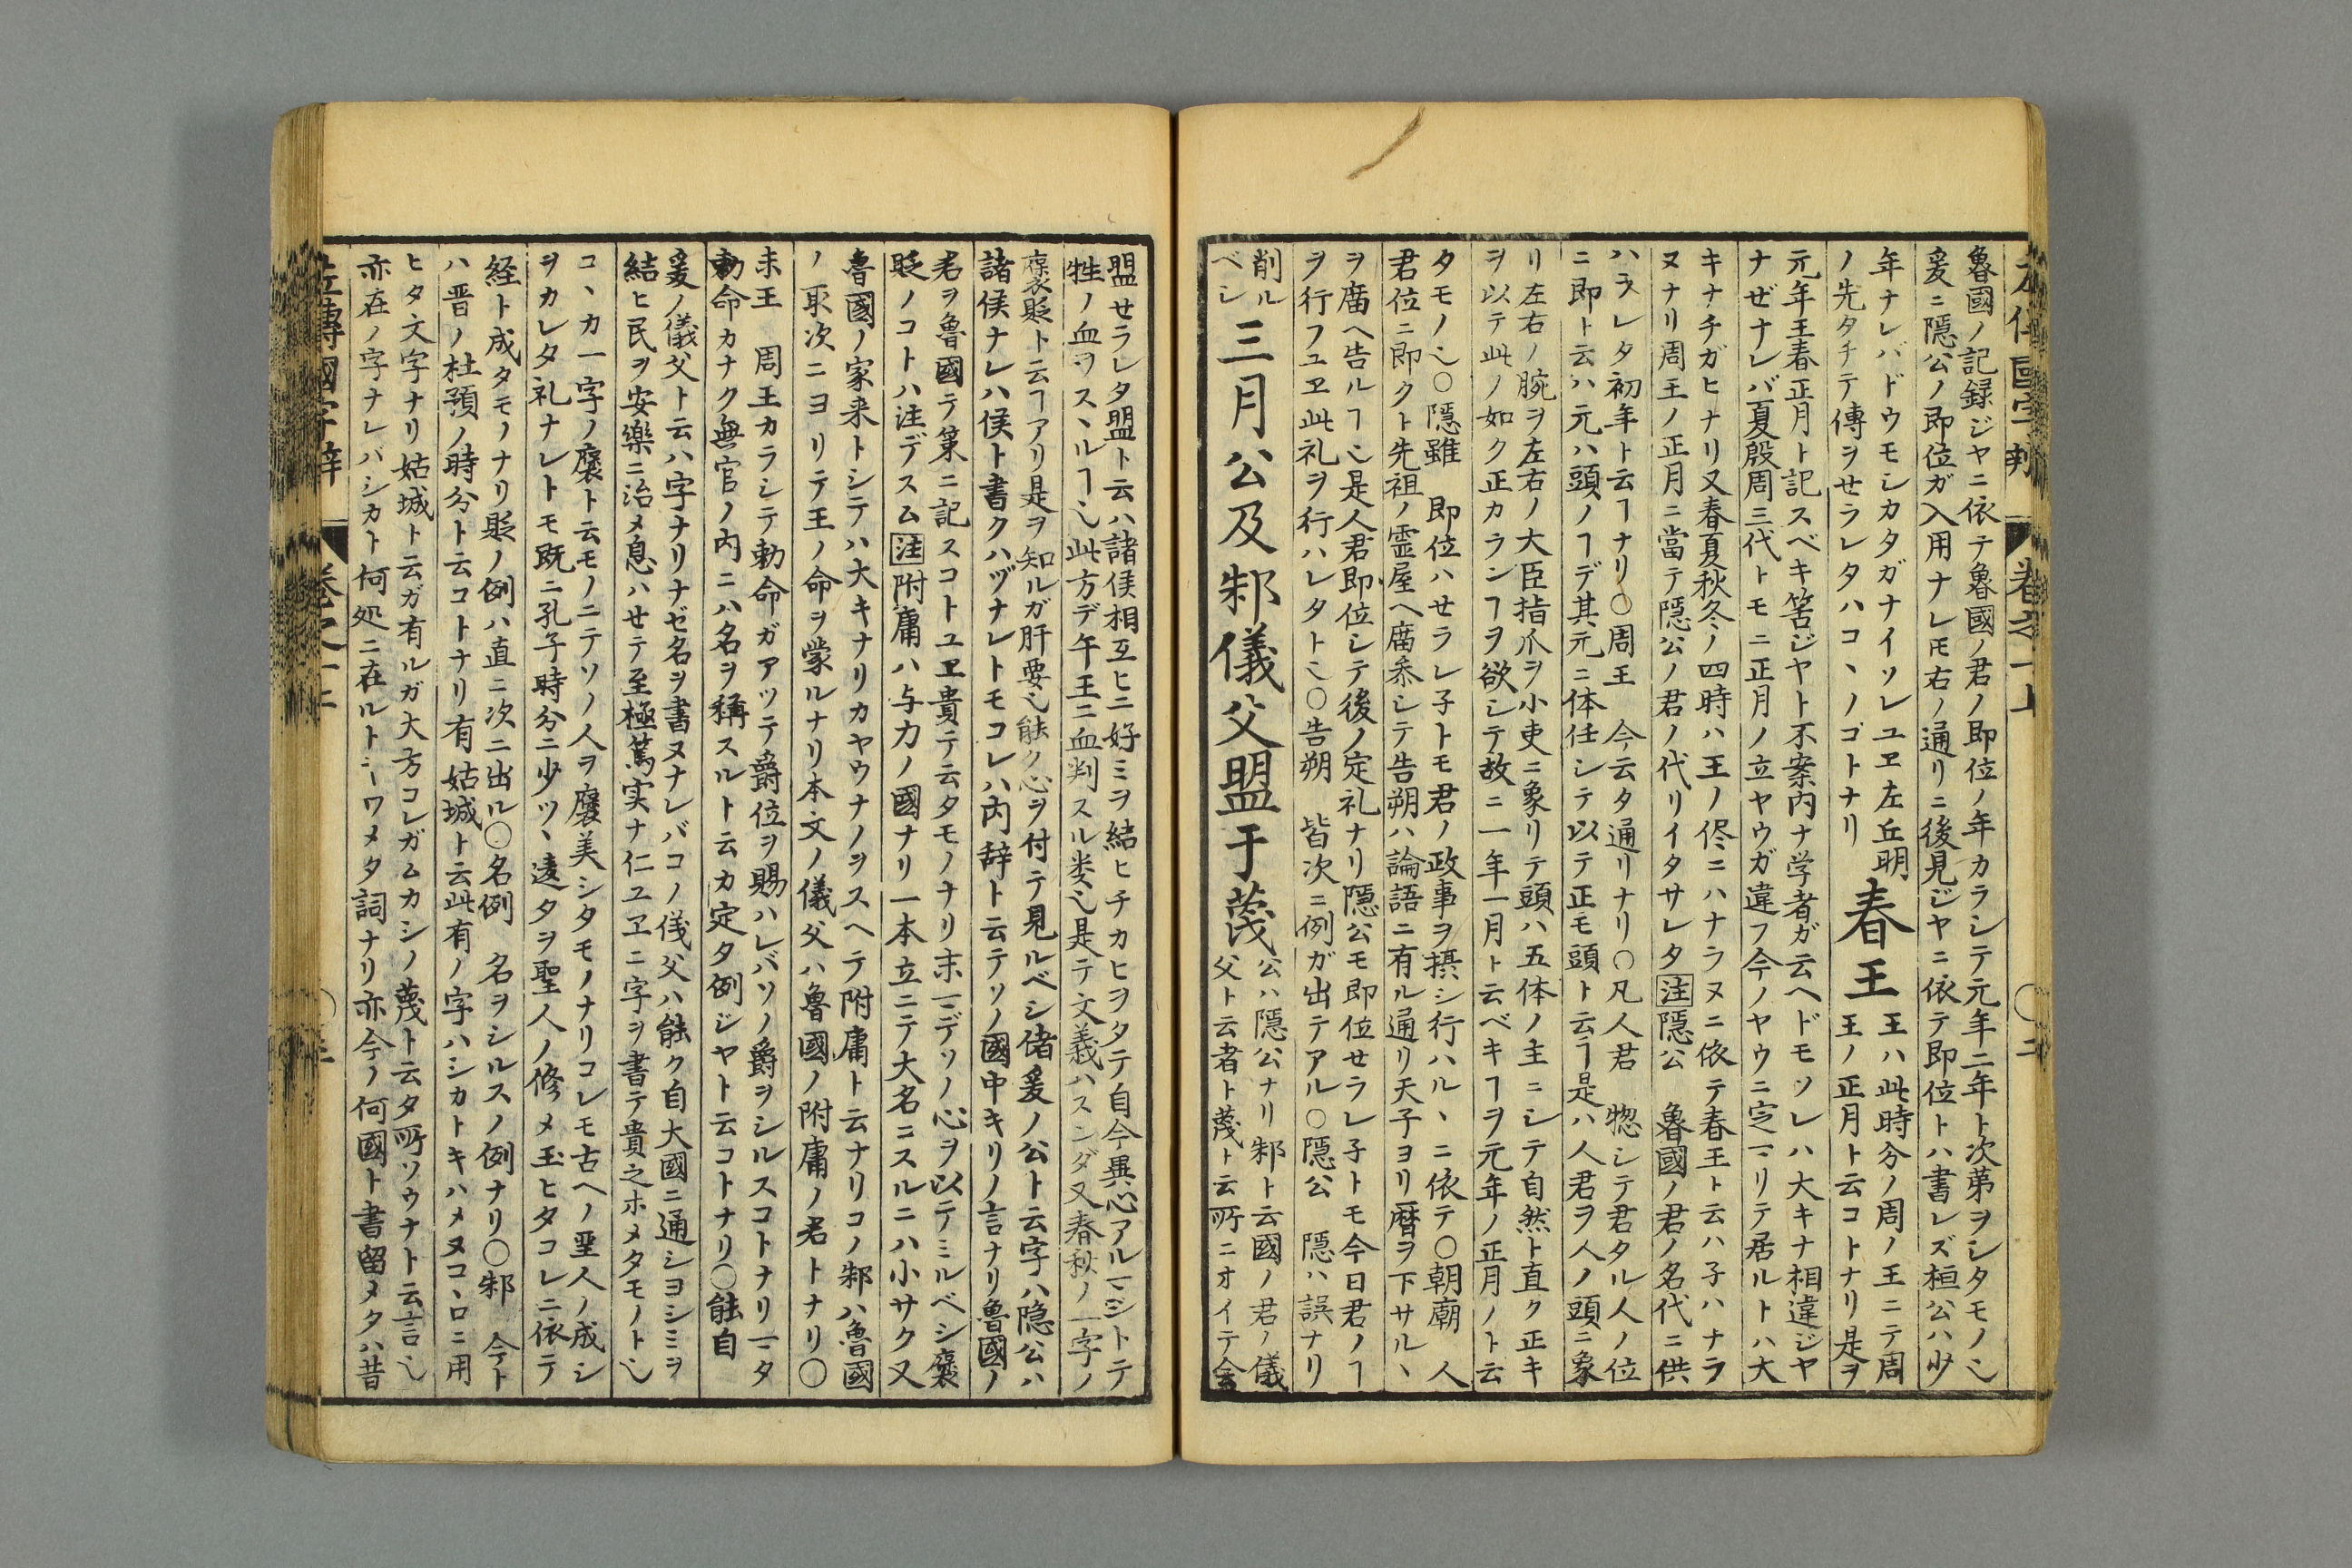 魯國ノ記録ジヤニ依テ魯國ノ君ノ即位ノ年カラシテ元年二年ト次第ヲシタモノ乀
爰ニ隠公ノ即位ガ入用ナレ𪜈右ノ通リニ後見ジヤニ依テ即位トハ書レズ桓公ハ少
年ナレバドウモシカタガナイソレユヱ左丘明
ノ先タチテ傳ヲせラレタハコヽノゴトナリ
春王
王ハ此時分ノ周ノ王ニテ周
王ノ正月ト云コトナリ是ヲ
元年王春正月ト記スベキ筈ジヤト不案内ナ学者ガ云ヘドモソレハ大キナ相違ジヤ
ナぜナレバ夏殷周三代トモニ正月ノ立ヤウガ違フ今ノヤウニ定マリテ居ルトハ大
キナチガヒナリ又春夏秋冬ノ四時ハ王ノ侭ニハナラヌニ依テ春王ト云ハ子ハナラ
ヌナリ周王ノ正月ニ當テ隠公ノ君ノ代リイタサレタ注隠公 魯國ノ君ノ名代ニ供
ハラレタ初年ト云ヿナリ〇周王 今云タ通リナリ〇凡人君 惣シテ君タル人ノ位
ニ即ト云ハ元ハ頭ノヿデ其元ニ体任シテ以テ正モ頭ト云ヿ是ハ人君ヲ人ノ頭ニ象
リ左右ノ腕ヲ左右ノ大臣指爪ヲ小吏ニ象リテ頭ハ五体ノ主ニシテ自然ト直ク正キ
ヲ以テ此ノ如ク正カランヿヲ欲シテ故ニ一年一月ト云ベキヿヲ元年ノ正月ノト云
タモノ乀〇隠雖 即位ハせラレ子トモ君ノ政事ヲ摂シ行ハルヽニ依テ〇朝廟 人
君位ニ即クト先祖ノ霊屋ヘ廟参シテ告朔ハ論語ニ有ル通リ天子ヨリ暦ヲ下サルヽ
ヲ廟ヘ告ルヿ乀是人君即位シテ後ノ定礼ナリ隠公モ即位せラレ子トモ今日君ノヿ
ヲ行フユヱ此礼ヲ行ハレタト乀〇告朔 皆次ニ例ガ出テアル〇隠公 隠ハ誤ナリ
削ル
ベシ
三月公及邾儀父盟于蔑
公ハ隠公ナリ邾ト云國ノ君ノ儀
父ト云者ト蔑ト云所ニオイテ会
盟せラレタ盟ト云ハ諸侯相互ヒニ好ミヲ結ヒチカヒヲタテ自今異心アルマジトテ
牲ノ血ヲスヽルヿ乀此方デ午王ニ血判スル类乀是テ文義ハスンダ又春秋ノ一字ノ
褒貶ト云ヿアリ是ヲ知ルガ肝要乀能ク心ヲ付テ見ルベシ偖爰ノ公ト云字ハ隠公ハ
諸侯ナレハ侯ト書クハヅナレトモコレハ内辞ト云テソノ國中キリノ言ナリ魯國ノ
君ヲ魯國テ策ニ記スコトユヱ貴テ云タモノナリ末マデソノ心ヲ以テミルベシ褒
貶ノコトハ注デスム注附庸ハ与力ノ國ナリ一本立ニテ大名ニスルニハ小サク又
魯國ノ家来トシテハ大キナリカヤウナノヲスヘテ附庸ト云ナリコノ邾ハ魯國
ノ取次ニヨリテ王ノ命ヲ蒙ルナリ本文ノ儀父ハ魯國ノ附庸ノ君トナリ〇
未王 周王カラシテ勅命ガアツテ爵位ヲ賜ハレバソノ爵ヲシルスコトナリマタ
勅命カナク無官ノ内ニハ名ヲ稱スルト云カ定タ例ジヤト云コトナリ〇能自
爰ノ儀父ト云ハ字ナリナゼ名ヲ書ヌナレバコノ儀父ハ能ク自大國ニ通シヨシミヲ
結ヒ民ヲ安樂ニ治メ息ハせテ至極篤実ナ仁ユヱニ字ヲ書テ貴之ホメタモノト乀
コヽカ一字ノ褒ト云モノニテソノ人ヲ褒美シタモノナリコレモ古ヘノ聖人ノ成シ
ヲカレタ礼ナレトモ既ニ孔子時分ニ少ツヽ違タヲ聖人ノ修メ玉ヒタコレニ依テ
経ト成タモノナリ貶ノ例ハ直ニ次ニ出ル〇名例 名ヲシルスノ例ナリ〇邾 今ト
ハ晋ノ杜預ノ時分ト云コトナリ有姑城ト云此有ノ字ハシカトキハメヌコヽロニ用
ヒタ文字ナリ姑城ト云ガ有ルガ大方コレガムカシノ蔑ト云タ所ソウナト云言乀
亦在ノ字ナレバシカト何処ニ在ルトキワメタ詞ナリ亦今ノ何國ト書留メタハ昔